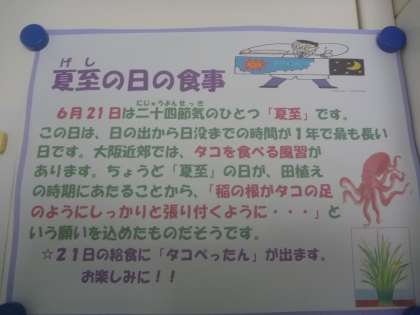 げし
夏至の日の食事
にじゅうよんせっき
6月21日は二十四節気のひとつ「夏至」です。
この日は、日の出から日没までの時間が1年で最も長い
日です。大阪近郊では、タコを食べる風習が
あります。ちょうど「夏至」の日が、田植え
の時期にあたることから、「稲の根がタコの足
のようにしっかりと張り付くように・・・」と
いう願いを込めたものだそうです。
☆21日の給食に「タコぺったん」が出ます。
お楽しみに！！